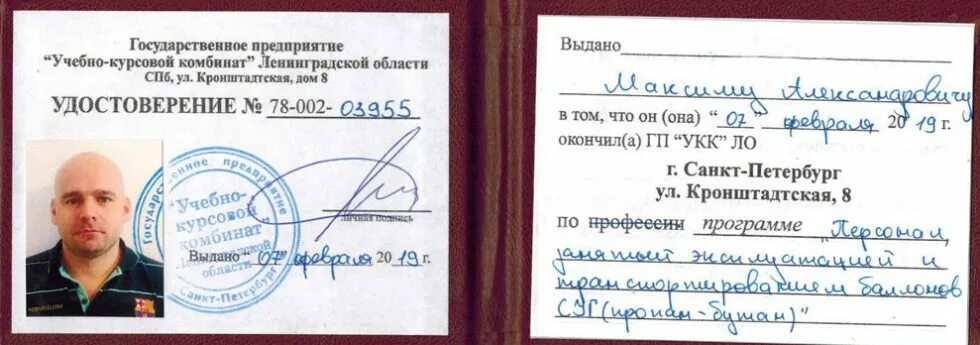 Государственное предприятие
"Учебно-курсовой комбинат" Ленинградской области
СПб, ул. Кронштадтская, дом 8
УДОСТОВЕРЕНИЕ № 78-002- 03955
Государственное предприятие
"Учебно-
курсовой
комбинат"
Ленинградской
области
Санкт-Петербург
личная подпись
Выдано "07" февраля 2019г.
Выдано
Максиму Александровичу
в том, что он (она) "07" февраля 2019г.
окончил(а) ГП "УКК" ЛО
г. Санкт-Петербург
ул. Кронштадтская, 8
по профессии программе "Персонал,
занятый эксплуатацией и
транспортированием баллонов
СУГ (пропан-бутан)"